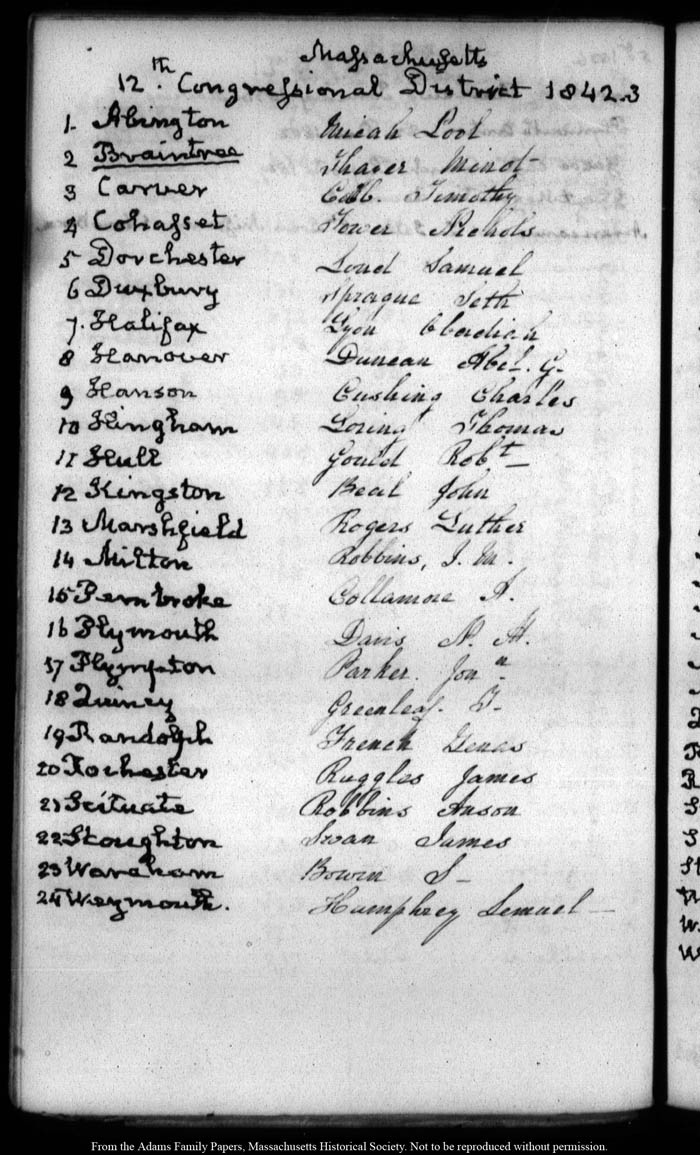 Massachusetts
12.th Congressional District 1842.3
1. Abington Micah Pool
2 Braintree Thayer Minot
3 Carver Cobb. Timothy
4 Cohasset Tower Nichols
5 Dorchester Loud Samuel
6 Duxbury Sprague Seth
7. Halifax Lyon Obadiah
8 Hanover Duncan Abel. G.
9 Hanson Cushing Charles
10 Hingham Loring Thomas
11 Hull Gould Robt —
12 Kingston Beal John
13 Marshfield Rogers Luther
14 Milton Robbins, J. M.
15 Pembroke Collamore A.
16 Plymouth Davis N. M.
17 Plympton Parker. Jon n.
18 Quincy Greenleaf. T-
19 Randolph French
20 Rochester Ruggles James
21 Scituate Robbins Anson
22 Stoughton Swan James
23 Wareham Bowen S-
24 Weymouth. Humphrey Lemuel —
From the Adams Family Papers, Massachusetts Historical Society. Not to be reproduced without permission.